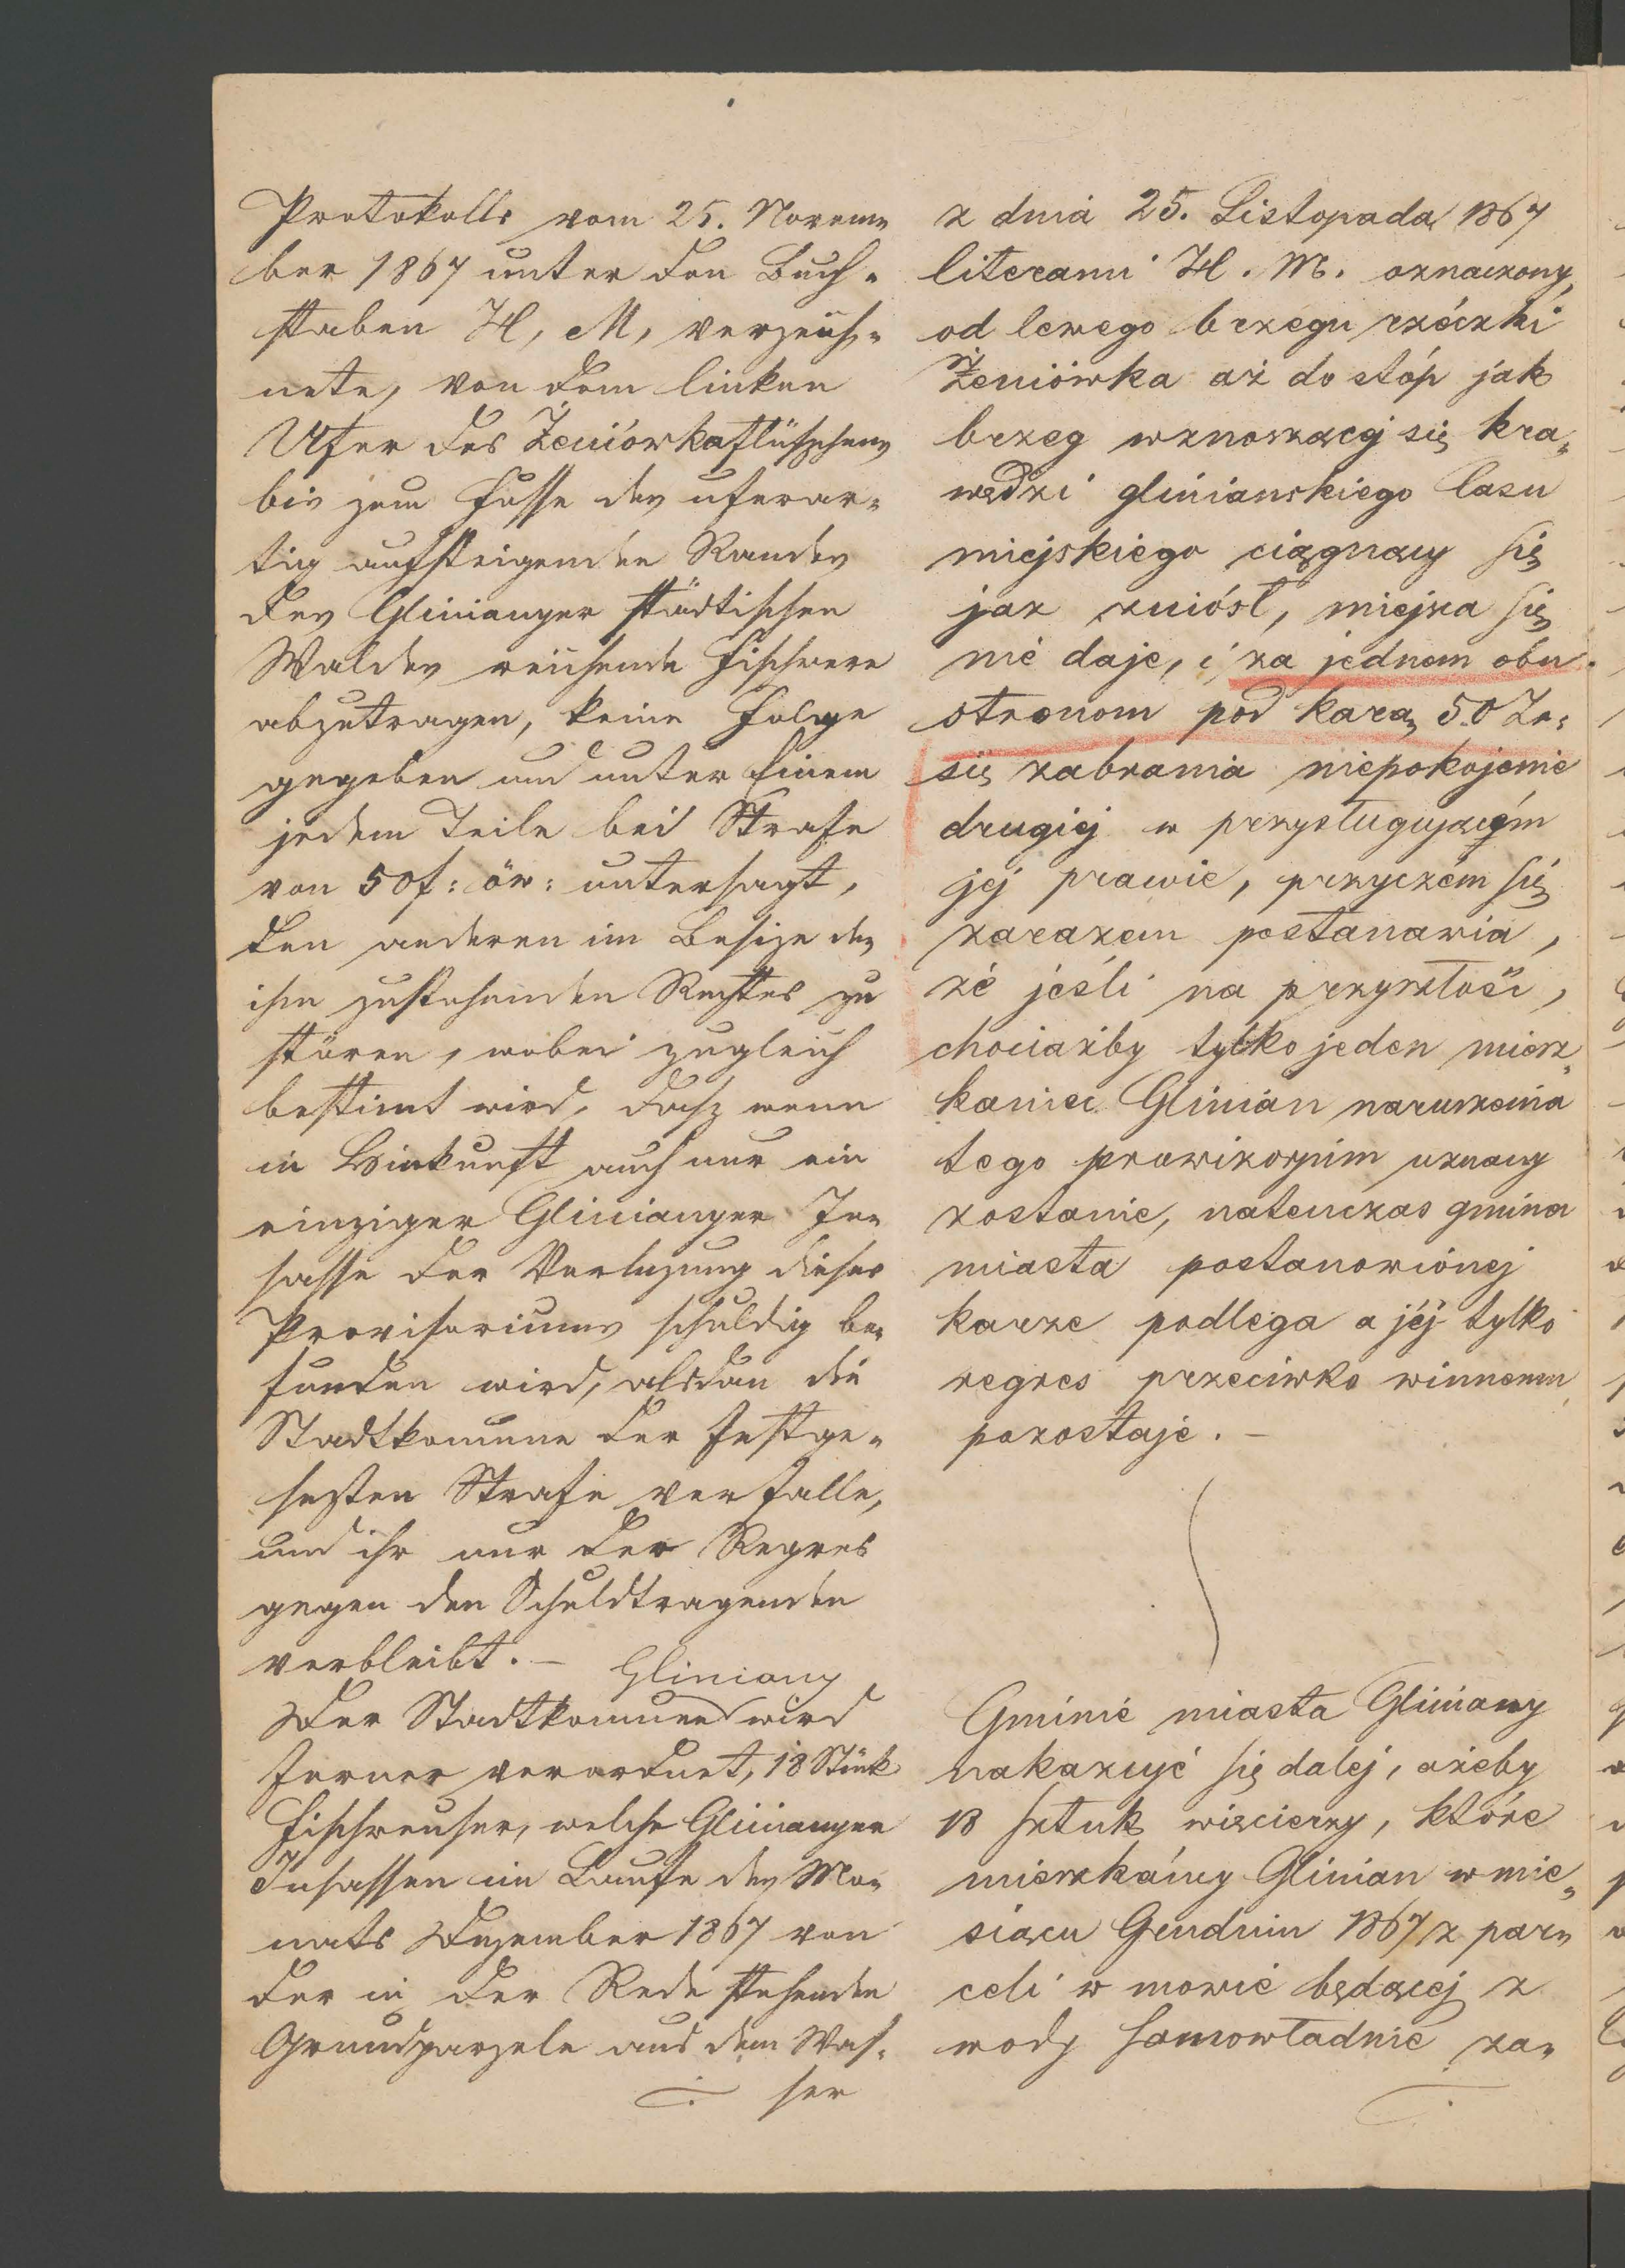 Protokolls vom 25. Novem=
ber 1867 unter den Buch=
staben H, M, verzeich=
nete, von dem linken
Ufer des Żeniówkaflüßchens
bis zum Fusse des uferar=
tig aufsteigenden Randes
des Glinianyer städtischen
Waldes reichende Fischwere
abzutragen, keine Folge
gegeben und unter Einem
jedem Teile bei Strafe
von 50 f: öw: untersagt,
den anderen im Besize des
ihm zustehenden Rechtes zu
stören, wobei zugleich
bestimt wird, dasz wenn
in Hinkunft auch nur ein
einziger Glinianyer In=
sasse der Verlezung dieses
Provisoriums schuldig be=
funden wird, alsdan die
Stadtkomune der festge=
sezten Strafe verfalle,
und ihr nur der Regres
gegen den Schuldtragenden
verbleibt. –
Gliniany
Der Stadtkomune wird
ferner verordnet, 18 Stük
Fischreuser, welche Glinianyer
Insassen im Laufe des Mo=
nats Dezember 1867 von
der in der Rede stehenden
Grundparzele aus dem Was=
ser
z dnia 25. Listopada 1867
literami H. M. oznaczony,
od lewego brzegu rzéczki
Żeniówka aż do stóp jak
brzeg wznoszącej się kra=
wędzi gliniańskiego lasu
miejskiego ciągnący się
jaz zniósł, miejsca się
nie daje, i za jednem obu
stronom pod karą 50 Zr:
się zabrania niepokojenie
drugiej w przysługującym
jej prawie, przyczém się
zarazem postanawia,
że jeśli na przyszłość,
chociażby tylko jeden miesz=
kaniec Glinian naruszenia
tego prowizoryum uznany
zostanie, natenczas gmina
miasta postanowionej
karze podlega a jéj tylko
regres przeciwko winnemu
pozostaje. –
Gminie miasta Gliniany
nakazuje się dalej, ażeby
18 sztuk więcierzy, które
mieszkańcy Glinian w mie=
siącu Grudniu 1867 z par=
celi w mowie będącej z
wody samowładnie za=